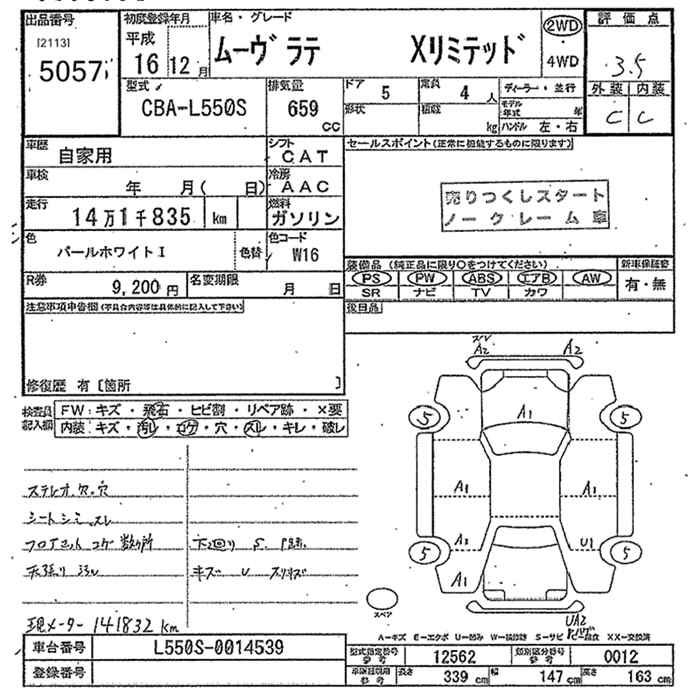 出品番号
[2113]
5057
初度登録年月
平成
16 12 月
車名・グレード
ムーヴ ラテ Xリミテッド
2WD
4WD
評価点
3.5
外装 内装
C C
型式
CBA-L550S
排気量
659
cc
ドア 5
定員 4 人
形状
積載 kg
ディーラー・並行
モデル年式 年
ハンドル 左・右
車歴
自家用
シフト
CAT
車検
年 月( 日)
冷房
AAC
走行
14万1千835 km
燃料
ガソリン
色
パールホワイトI
色替
色コード
W16
R券
9,200 円
名変期限
月 日
セールスポイント(正常に機能するものに限ります)
売りつくしスタート
ノークレーム車
装備品(純正品に限り○をつけてください)
新車保証書
PS PW ABS エアB AW
有・無
SR ナビ TV カワ
後日品
注意事項申告欄(不具合内容等は具体的に記入して下さい)
修復歴 有 [箇所 ]
検査員
記入欄
FW:キズ・飛石・ヒビ割・リペア跡・×要
内装:キズ・汚レ・コゲ・穴・スレ・キレ・破レ
ステレオ欠.穴
シートシミ.スレ
フロアマット コゲ 数ヶ所
天張り 汚レ
下廻り S
キズ U
現メーター 141832 km
A2
A2
A1
5
5
A1
A1
A1
U1
5
5
A1
UA2
スペア
A-キズ E-エクボ U-凹み W-補修跡 S-サビ C-腐食 XX-交換済
車台番号
L550S-0014539
登録番号
型式指定番号
参考
12562
類別区分番号
参考
0012
参考
長さ 339 cm
幅 147 cm
高さ 163 cm